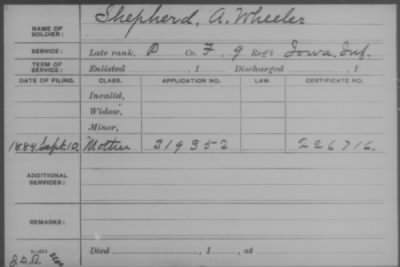 NAME OF SOLDIER: Shepherd, A. Wheeler
SERVICE: Late rank, P Co. F, 9 Reg't Iowa Inf.
TERM OF SERVICE: Enlisted , 1 Discharged , 1
DATE OF FILING. CLASS. APPLICATION NO. LAW. CERTIFICATE NO.
Invalid,
Widow,
Minor,
1884, Sept. 10, Mother 319352 226716.
ADDITIONAL SERVICES:
REMARKS:
Died , 1 , at